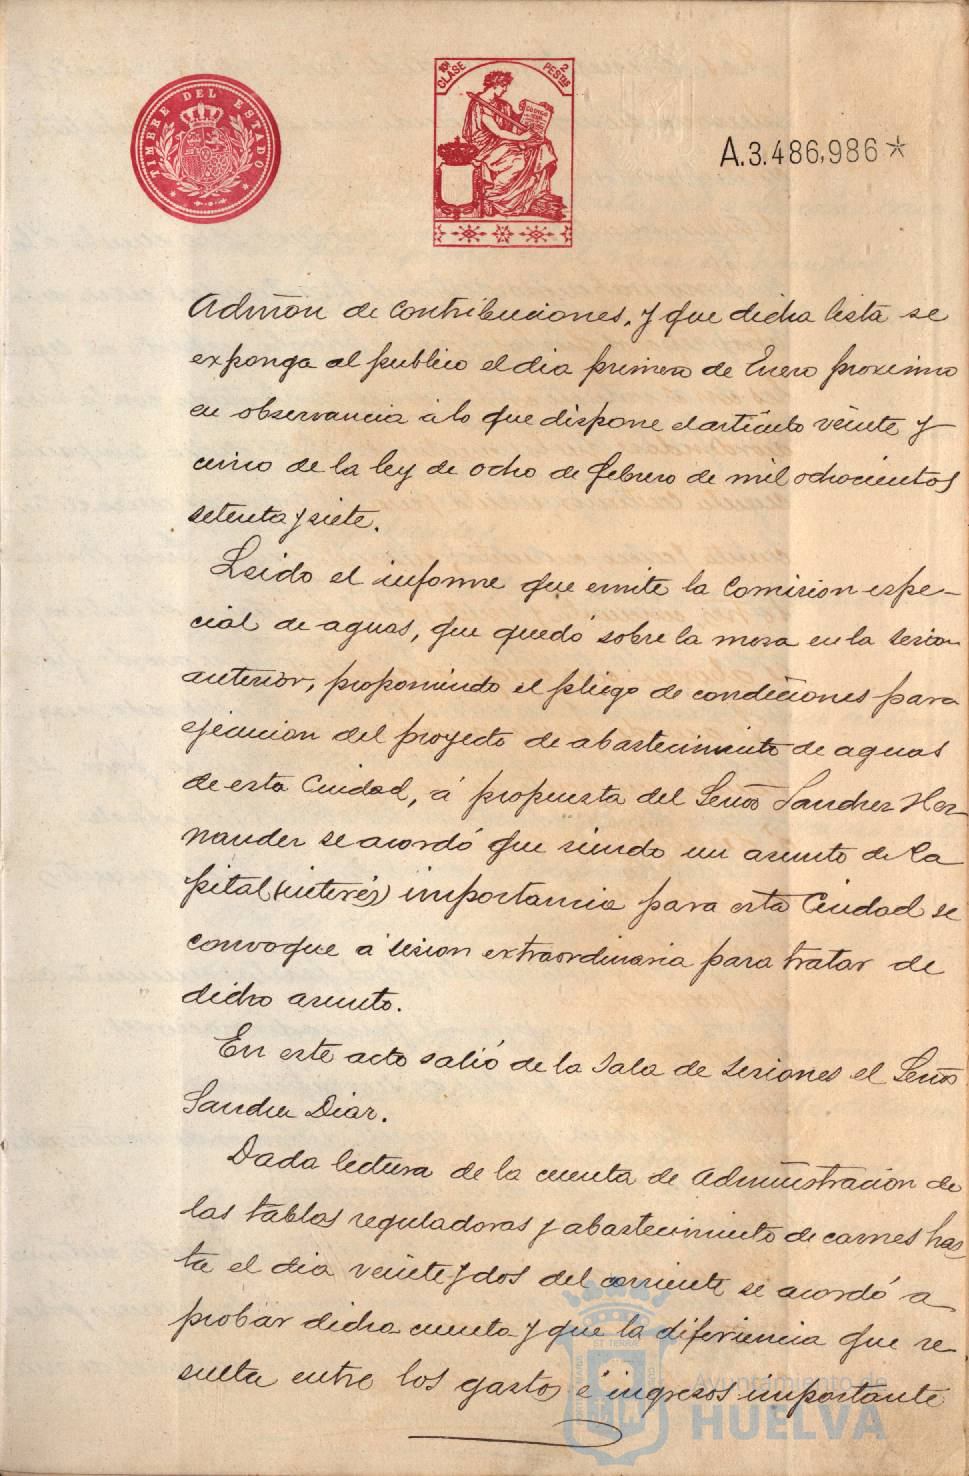 TIMBRE DEL ESTADO
10ª CLASE
2 PESTAS
A.3.486,986*
Admon de Contribuciones, y que dicha lista se
exponga al publico el dia primero de Enero proximo
en observancia á lo que dispone el articulo veinte y
cinco de la ley de ocho de febrero de mil ochocientos
setenta y siete.
Leido el informe que emite la Comision espe-
cial de aguas, que quedó sobre la mesa en la sesion
anterior, proponiendo el pliego de condiciones para
ejecucion del proyecto de abastecimiento de aguas
de esta Ciudad, á propuesta del Señor Sanchez Her-
nandez se acordó que siendo un asunto de Ca
pital (interés) importancia para esta Ciudad se
convoque á sesion extraordinaria para tratar de
dicho asunto.
En este acto salió de la Sala de Sesiones el Señor
Sanchez Diaz.
Dada lectura de la cuenta de Administracion de
las tablas reguladoras y abastecimiento de carnes has
ta el dia veinte y dos del corriente se acordó a
probar dicha cuenta y que la diferiencia que re
sulta entre los gastos é ingresos importante
Ayuntamiento de
HUELVA